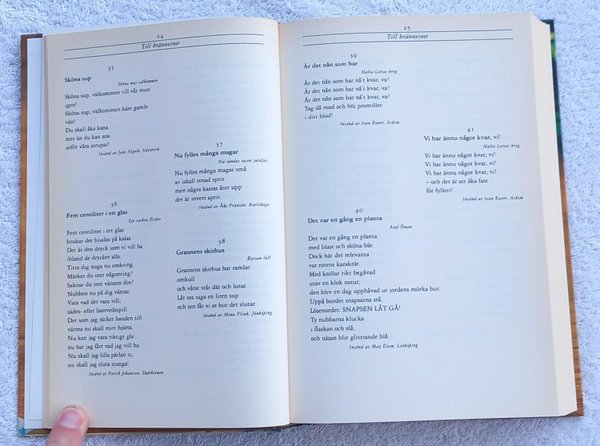 24
Till brännvinet
35
Sköna sup
Sköna maj välkommen
Sköna sup, välkommen till vår mun
igen!
Sköna sup, välkommen käre gamle
vän!
Du skall åka kana
mer än du kan ana
utför våra strupar!
Insänd av Jam Alpsik, Västervik
36
Fem centiliter i ett glas
Tre vackra flickor
Fem centiliter i ett glas
brukar det bjudas på kalas.
Det är den dryck som vi vill ha
ibland de drycker alla.
Titta dig noga nu omkring.
Märker du inte någonting?
Saknar du inte vännen din?
Nubben nu på dig väntar.
Vara vad det vara vill;
sädes- eller hartvedspill.
Det som jag räcker handen till
värma nu skall mitt hjärta.
Nu kan jag vara riktigt gla ,
nu har jag fått vad jag vill ha.
Nu skall jag lilla pärlan ta,
nu skall jag sluta sjunga!
Insänd av Patrik Johansson, Skärholmen
37
Nu fylles många magar
Nu tändas tusen juleljus
Nu fylles många magar små
av iskall renad sprit
men några kastas åter upp
det är invers aptit.
Insänd av Åke Franzén, Karlskoga
38
Grannens skithus
Byssan lull
Grannens skithus har ramlat
omkull
och vänr står där och lurar.
Låt oss taga en liten sup
och sen får vi se hur det slutar.
Insänd av Mona Flink, Jönköping
25
Till brännvinet
39
Är det nån som har
Halta Lottas krog
Är det nån som har nå't kvar, va?
Är det nån som har nå't kvar, va?
Är det nån som har nå't kvar, va?
Tag då mod och höj promillet
i ditt blod!
Insänd av Ivan Ewert, Askim
41
Vi har ännu något kvar, vi!
Halta Lottas krog
Vi har ännu något kvar, vi!
Vi har ännu något kvar, vi!
Vi har ännu något kvar, vi!
– och det är att åka fast
för fylleri!
Insänd av Ivan Ewert, Askim
40
Det var en gång en planta
Axel Öman
Det var en gång en planta
med blast och sköna bär.
Dock här det relevanta
var rotens karaktär.
Med knölar rikt begåvad
utav en klok natur,
den blev en dag upphåvad ur jordens mörka bur.
Uppå bordet snapsarna stå.
Lösenorder: SNAPSEN LÅT GÅ!
Ty nubbarna klucka
i flaskan och slå,
och näsan blir glittrande blå.
Insänd av May Elam, Linköping